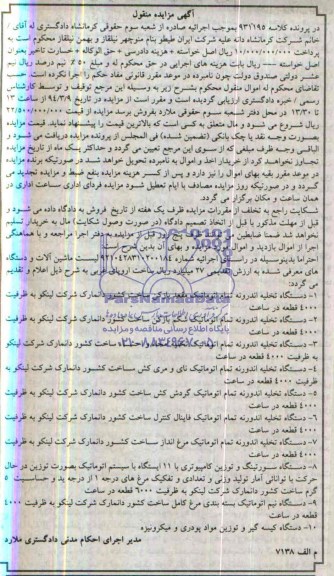 آگهی مزایده منقول
در پرونده کلاسه ۹۳۱۱۹۵ بموجب اجرائیه صادره از شعبه سوم حقوقی کرمانشاه دادگستری له آقای /
خانم شرکت کرمانشاه دانه علیه شرکت ایران طیطو بنام منوچهر نیلفاز و بهمن نیلفاز محکوم است به
پرداخت ۱۰/۰۰۰/۰۰۰/۰۰۰ ریال اصل خواسته + هزینه دادرسی + حق الوکاله + خسارت تاخیر بعنوان
اصل خواسته ---- ریال بابت هزینه های اجرایی در حق محکوم له و مبلغ ۵۰٪ نیم درصد ریال نیم
عشر دولتی صندوق دولت چون نامبرده در موعد مقرر قانونی مفاد حکم را اجرا نکرده است. حسب
تقاضای محکوم له اموال منقول محکوم بشرح زیر به وسیله این مرجع توقیف و توسط کارشناس
رسمی / خبره دادگستری ارزیابی گردیده است و مقرر است از مزایده در تاریخ ۹۴/۳/۹ از ساعت ۱۲
تا ۱۳/۳۰ در محل دفتر شعبه سوم حقوقی ملارد بفروش برسد مزایده از قیمت ۲۲/۵۰۰/۰۰۰/۰۰۰
ریال شروع می شود و مال متعلق به کسی است که بالاترین قیمت را پیشنهاد نماید. قیمت مزایده
بصورت وجه نقد یا چک بانکی (تضمین شده) فی المجلس از برنده مزایده دریافت می شود و
الباقی وجه ظرف مبلغی که از سوی این مرجع تعیین می گردد و حداکثر یک ماه از تاریخ مزایده
تجاوز نخواهد کرد از خریدار اخذ و اموال به نامبرده تحویل خواهد شد در صورتیکه برنده مزایده
در موعد مقرر بقیه بهای اموال را نیز دارد و پس از کسر هزینه مزایده بنفع ضبط و مزایده تجدید می
گردد و در صورتیکه روز مزایده مصادف با ایام تعطیل شود مزایده فردای اداری بساعت اداری در
همان ساعت و مکان برگزار می گردد.
شکایت راجع به تخلف از مقررات مزایده ظرف یک هفته از تاریخ فروش به دادگاه داده می شود و
قبل از مهلت مذکور یا قبل از اتخاذ تصمیم دادگاه (در صورت وصول شکایت) مال به خریدار تسلیم
نخواهد شد ضمنا متقاضیان روز قبل از مزایده به دفتر اجرا مراجعه و با هماهنگی
اجرا از اموال بازدید و اموال مورد مزایده و بهای آن بدین شرح است:
احتراما بدینوسیله در راستای اجرائیه شماره ۹۴۱۰۴۲۸۳۱۰۲۰۰۱۸۴ لیست ماشین آلات و دستگاه
های معرفی شده به ارزش تقدیمی ۲۷ میلیارد ریال ساخت اروپای غربی به شرح ذیل اعلام و تقدیم
می گردد:
۱- دستگاه تخلیه اندورنه تمام اتوماتیک مقعد بازکن ساخت کشور دانمارک شرکت لینکو به ظرفیت
۴۰۰۰ قطعه در ساعت
۲- دستگاه تخلیه اندورنه تمام اتوماتیک شکم بازکن ساخت کشور دانمارک شرکت لینکو به ظرفیت
۴۰۰۰ قطعه در ساعت
۳- دستگاه تخلیه اندورنه تمام اتوماتیک تخلیه و احشاء ساخت کشور دانمارک شرکت لینکو
به ظرفیت ۴۰۰۰ قطعه در ساعت
۴- دستگاه تخلیه اندورنه تمام اتوماتیک نای و مری کش ساخت کشور دانمارک شرکت لینکو به
ظرفیت ۴۰۰۰ قطعه در ساعت
۵- دستگاه تخلیه اندورنه تمام اتوماتیک گردش کش ساخت کشور دانمارک شرکت لینکو به ظرفیت
۴۰۰۰ قطعه در ساعت
۶- دستگاه تخلیه اندورنه تمام اتوماتیک فاینال کنترل ساخت کشور دانمارک شرکت لینکو به ظرفیت
۴۰۰۰ قطعه در ساعت
۷- دستگاه تخلیه اندورنه تمام اتوماتیک مرغ انداز ساخت کشور دانمارک شرکت لینکو به ظرفیت
۴۰۰۰ قطعه در ساعت
۸- دستگاه سورتینگ و توزین کامپیوتری با ۱۱ ایستگاه با سیستم اتوماتیک بصورت توزین در حال
حرکت با توانائی آمار تولید وزنی و تعدادی و تفکیک مرغ های درجه ۱ از درجه ید و حساسیت ۵
گرم ساخت کشور دانمارک شرکت لینکو به ظرفیت ۶۰۰۰ قطعه در ساعت
۹- دستگاه نیم اتوماتیک بسته بندی مرغ کامل ساخت کشور دانمارک شرکت لینکو به ظرفیت ۴۰۰۰
قطعه در ساعت
۱۰- دستگاه کیسه گیر و توزین مواد پودری و میکرونیزه
مدیر اجرای احکام مدنی دادگستری ملارد
م الف ۷۱۳۸
ParsNamadData
پایگاه اطلاع رسانی مناقصه و مزایده
۰۲۱-۸۸۳۴۹۶۷۰-۵